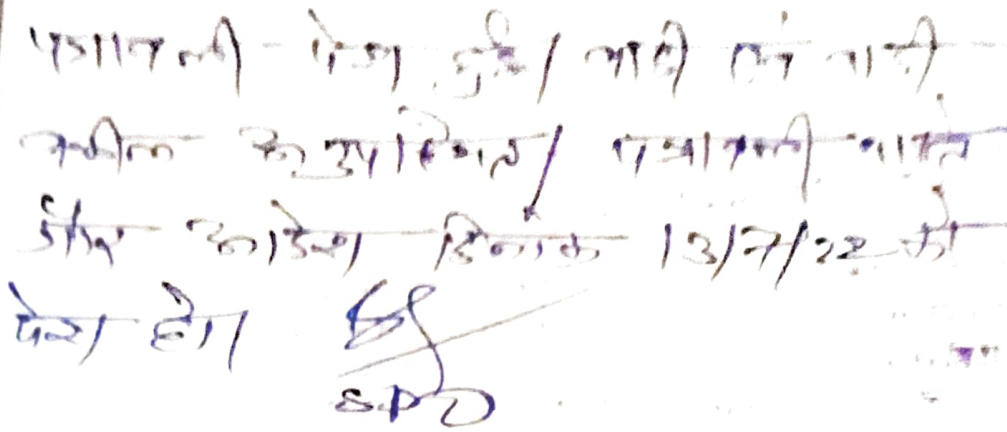 पत्रावली पेश हुई। वादी एवं वादी
वकील अनुपस्थित। पत्रावली वास्ते
आदेश दिनांक 13/7/22 को
पेश हो।
SDO